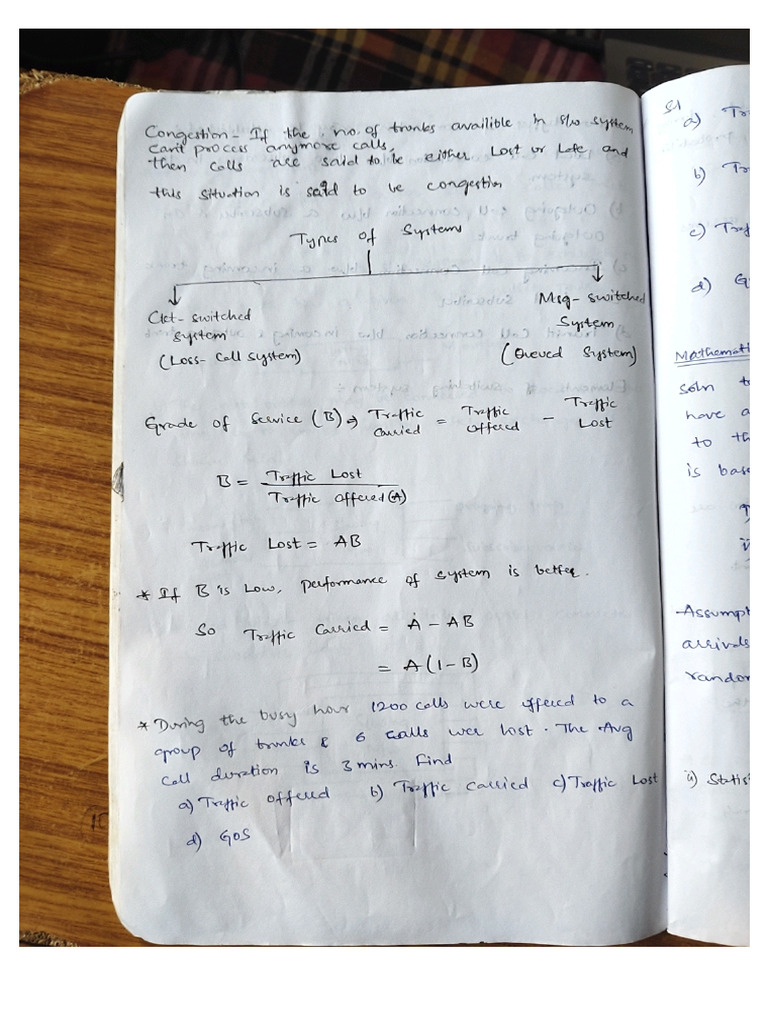 Congestion - If the no. of trunks availible in s/w system
can't process anymore calls,
then calls are said to be either Lost or Late and
this situation is said to be congestion
Types of Systems
Ckt - switched
system
(Loss - Call System)
Msg - switched
System
(Queued System)
Grade of Service (B) → Traffic Carried = Traffic offered - Traffic Lost
B = Traffic Lost
Traffic offered (A)
Traffic Lost = AB
* If B is Low, performance of system is better.
So Traffic Carried = A - AB
= A(1 - B)
* During the busy hour 1200 calls were offered to a
group of trunks & 6 calls were lost. The Avg
call duration is 3 mins. Find
a) Traffic offered b) Traffic carried c) Traffic Lost
d) GOS
Sl
a) Tr
b) Tr
c) Traf
d) G
Mathemati
soln to
have a
to th
is base
Assumpt
arrivals
random
ii) Statis